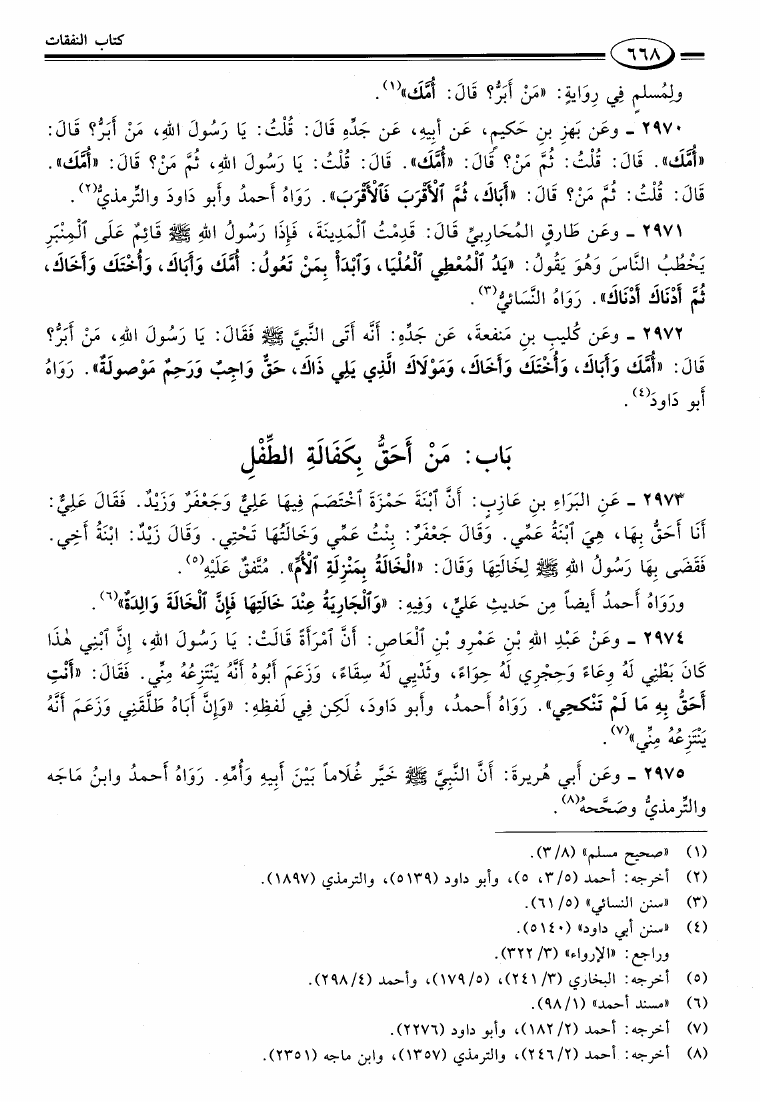 كتاب النفقات
٦٦٨
ولِمُسلمٍ فِي رِوَايةٍ: «مَنْ أَبَرُّ؟ قَالَ: أُمَّكَ»(١).
٢٩٧٠ ـ وعَن بَهزِ بنِ حَكيمٍ، عَن أبيهِ، عَن جَدِّهِ قَالَ: قُلْتُ: يَا رَسُولَ اللهِ، مَنْ أَبَرُّ؟ قَالَ:
«أُمَّكَ». قَالَ: قُلْتُ: ثُمَّ مَنْ؟ قَالَ: «أُمَّكَ». قَالَ: قُلْتُ: يَا رَسُولَ اللهِ، ثُمَّ مَنْ؟ قَالَ: «أُمَّكَ».
قَالَ: قُلْتُ: ثُمَّ مَنْ؟ قَالَ: «أَبَاكَ، ثُمَّ ٱلْأَقْرَبَ فَٱلْأَقْرَبَ». رَوَاهُ أحمدُ وأبو دَاودَ والتِّرمذيُّ(٢).
٢٩٧١ ـ وعَن طَارقٍ المُحَاربيِّ قَالَ: قَدِمْتُ ٱلْمَدِينَةَ، فَإِذَا رَسُولُ اللهِ ﷺ قَائِمٌ عَلَى ٱلْمِنْبَرِ
يَخْطُبُ النَّاسَ وَهُوَ يَقُولُ: «يَدُ ٱلْمُعْطِي ٱلْعُلْيَا، وَٱبْدَأْ بِمَنْ تَعُولُ: أُمَّكَ وَأَبَاكَ، وَأُخْتَكَ وَأَخَاكَ،
ثُمَّ أَدْنَاكَ أَدْنَاكَ». رَوَاهُ النَّسَائيُّ(٣).
٢٩٧٢ ـ وعَن كُليبِ بنِ مَنفعةَ، عَن جَدِّهِ: أَنَّه أَتَى النَّبيَّ ﷺ فَقَالَ: يَا رَسُولَ اللهِ، مَنْ أَبَرُّ؟
قَالَ: «أُمَّكَ وَأَبَاكَ، وَأُخْتَكَ وَأَخَاكَ، وَمَوْلَاكَ الَّذِي يَلِي ذَاكَ، حَقٌّ وَاجِبٌ وَرَحِمٌ مَوْصولَةٌ». رَوَاهُ
أَبو دَاودَ(٤).
بَاب: مَنْ أَحَقُّ بِكَفَالَةِ الطِّفْلِ
٢٩٧٣ ـ عَنِ البَرَاءِ بنِ عَازبٍ: أَنَّ ٱبْنَةَ حَمْزَةَ ٱخْتَصَمَ فِيهَا عَلِيٌّ وَجَعْفَرٌ وَزَيْدٌ. فَقَالَ عَلِيٌّ:
أَنَا أَحَقُّ بِهَا، هِيَ ٱبْنَةُ عَمِّي. وَقَالَ جَعْفَرٌ: بِنْتُ عَمِّي وَخَالَتُهَا تَحْتِي. وَقَالَ زَيْدٌ: ابْنَةُ أَخِي.
فَقَضَى بِهَا رَسُولُ اللهِ ﷺ لِخَالَتِهَا وَقَالَ: «ٱلْخَالَةُ بِمَنْزِلَةِ ٱلْأُمِّ». مُتَّفقٌ عَلَيْهِ(٥).
ورَوَاهُ أحمدُ أيضاً مِن حَديثِ عَليٍّ، وَفِيهِ: «وَٱلْجَارِيَةُ عِنْدَ خَالَتِهَا فَإِنَّ ٱلْخَالَةَ وَالِدَةٌ»(٦).
٢٩٧٤ ـ وعَنْ عَبْدِ اللهِ بْنِ عَمْرِو بْنِ ٱلْعَاصِ: أَنَّ ٱمْرَأَةً قَالَتْ: يَا رَسُولَ اللهِ، إِنَّ ٱبْنِي هٰذَا
كَانَ بَطْنِي لَهُ وِعَاءً وَحِجْرِي لَهُ حِوَاءً، وَثَدْيِي لَهُ سِقَاءً، وَزَعَمَ أَبُوهُ أَنَّهُ يَنْتَزِعُهُ مِنِّي. فَقَالَ: «أَنْتِ
أَحَقُّ بِهِ مَا لَمْ تَنْكحِي». رَوَاهُ أحمدُ، وأبو دَاودَ، لَكِن فِي لَفظِهِ: «وَإِنَّ أَبَاهُ طَلَّقَنِي وَزَعَمَ أَنَّهُ
يَنْتَزِعُهُ مِنِّي»(٧).
٢٩٧٥ ـ وعَن أَبي هُريرةَ: أَنَّ النَّبيَّ ﷺ خَيَّر غُلَاماً بَيْنَ أَبيهِ وَأُمِّهِ. رَوَاهُ أحمدُ وابنُ مَاجَه
والتِّرمذيُّ وصَحَّحهُ(٨).
(١) «صحيح مسلم» (٣/٨).
(٢) أخرجه: أحمد (٣/٥، ٥)، وأبو داود (٥١٣٩)، والترمذي (١٨٩٧).
(٣) «سنن النسائي» (٦١/٥).
(٤) «سنن أبي داود» (٥١٤٠).
وراجع: «الإرواء» (٣٢٢/٣).
(٥) أخرجه: البخاري (٢٤١/٣)، (١٧٩/٥)، وأحمد (٢٩٨/٤).
(٦) «مسند أحمد» (٩٨/١).
(٧) أخرجه: أحمد (١٨٢/٢)، وأبو داود (٢٢٧٦).
(٨) أخرجه: أحمد (٢٤٦/٢)، والترمذي (١٣٥٧)، وابن ماجه (٢٣٥١).